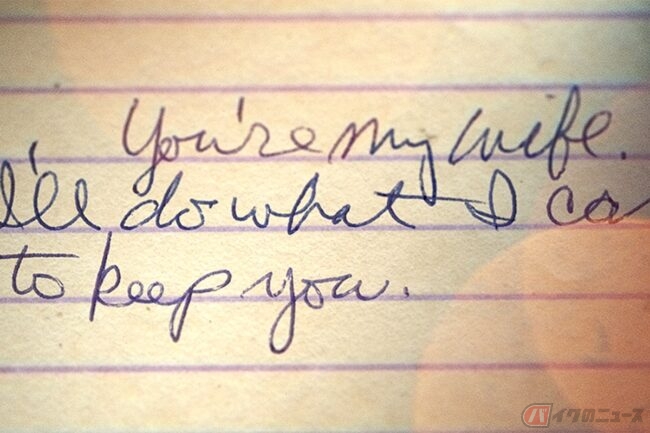 You're my wife.
I'll do what I ca
to keep you.
バイクのニュース